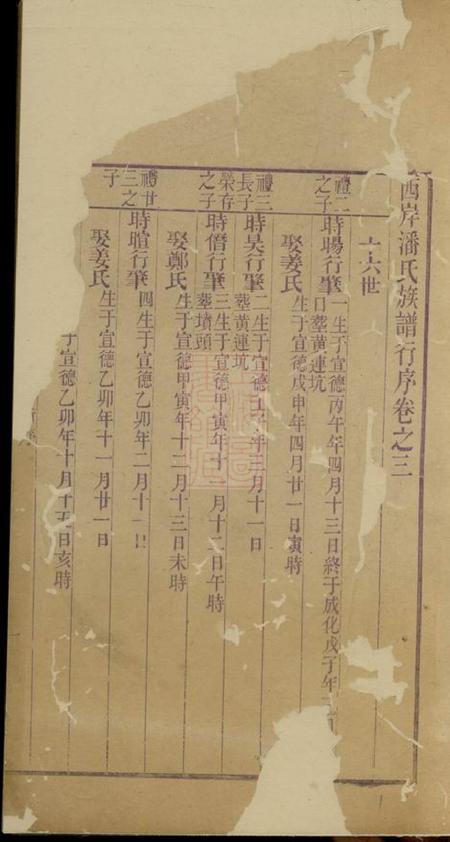 西岸潘氏族譜行序卷之三
十六世
禮二之子
時暘行肇一生于宣德丙午年四月十三日終于成化戊子年
口塟黃連坑
娶姜氏生于宣德戊申年四月廿一日寅時
禮三長子
時昊行肇二生于宣德 年三月十一日
塟黃連坑
榮存之子
時僭行肇三生于宣德甲寅年十 月十二日午時
塟墳頭
娶鄭氏生于宣德甲寅年十二月十三日未時
禮廿三之子
時暄行肇四生于宣德乙卯年二月十 日
娶姜氏生于宣德乙卯年十一月廿一日
于宣德乙卯年十月十五日亥時